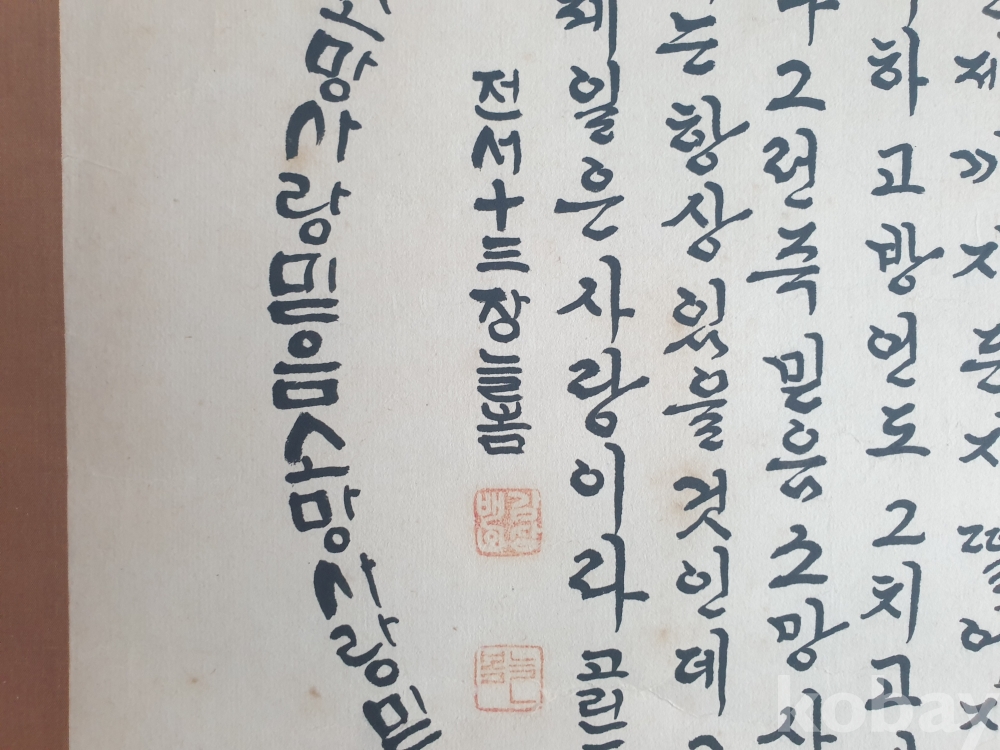 제까지든지떨어지
하고방언도그치고
그런즉믿음소망사
는항상있을것인데
제일은사랑이라 고린
전서十三장늘봄
망사랑믿음소망사랑믿
늘봄
kobay